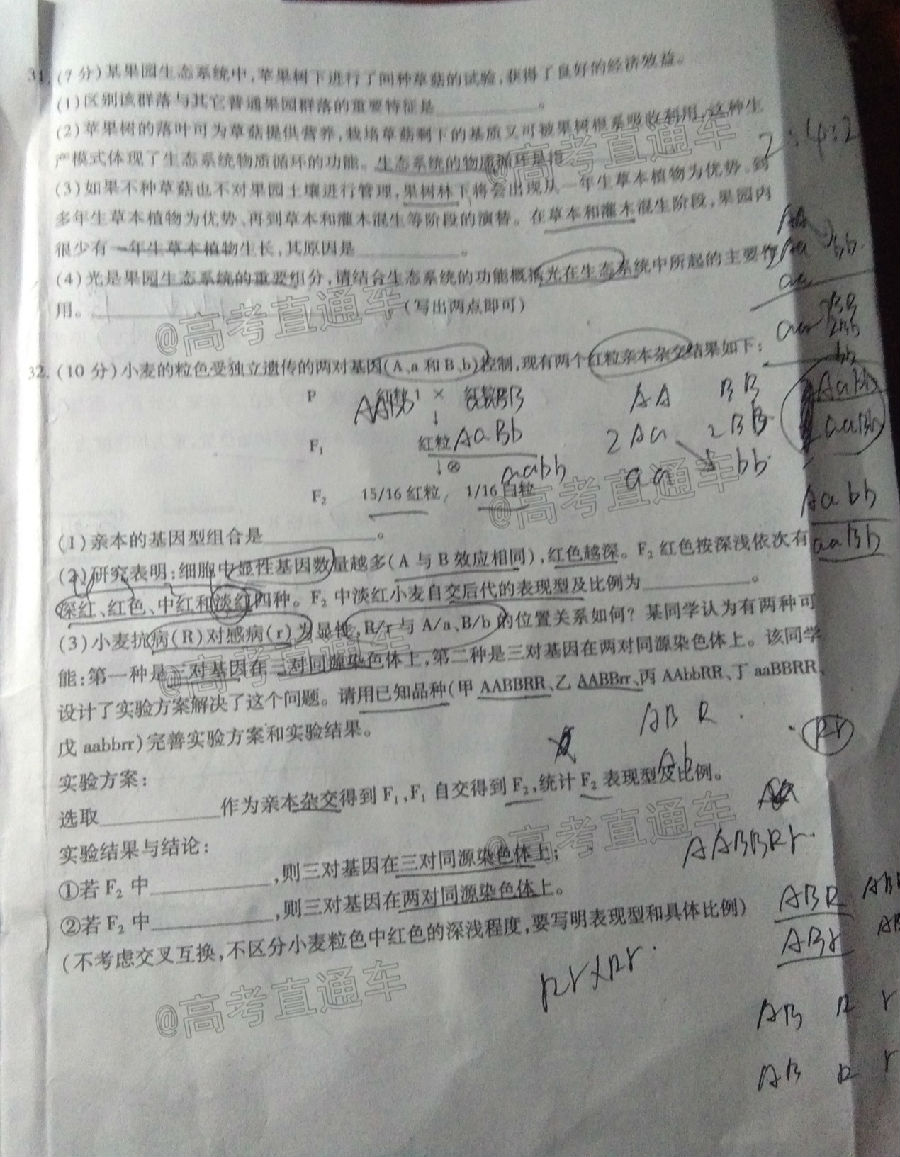 31.(7分)某果园生态系统中,苹果树下进行了间种草菇的试验,获得了良好的经济效益。
(1)区别该群落与其它普通果园群落的重要特征是____________。
(2)苹果树的落叶可为草菇提供营养,栽培草菇剩下的基质又可被果树根系吸收利用,这种生
产模式体现了生态系统物质循环的功能。生态系统的物质循环是指
2:4:2
(3)如果不种草菇也不对果园土壤进行管理,果树林下将会出现从一年生草本植物为优势,到
多年生草本植物为优势,再到草本和灌木混生等阶段的演替。在草本和灌木混生阶段,果园内
很少有一年生草本植物生长,其原因是____________。
(4)光是果园生态系统的重要组分,请结合生态系统的功能概述光在生态系统中所起的主要作
用。____________(写出两点即可)
AA
2Aa
aa
bb
aa
BB
2Bb
bb
@高考直通车
32.(10分)小麦的粒色受独立遗传的两对基因(A、a和B、b)控制,现有两个红粒亲本杂交结果如下:
P 红粒1 × 红粒
AAbb aaBB
↓
F₁ 红粒 AaBb
↓⊗
aabb
F₂ 15/16 红粒, 1/16 白粒
AA BB
2Aa 2BB
aa bb
Aabb
aaBb
Aabb
aaBb
@高考直通车
(1)亲本的基因型组合是____________。
(2)研究表明:细胞中显性基因数量越多(A与B效应相同),红色越深。F₂红色按深浅依次有
深红、红色、中红和淡红四种。F₂中淡红小麦自交后代的表现型及比例为____________。
(3)小麦抗病(R)对感病(r)为显性,R/r与A/a、B/b的位置关系如何?某同学认为有两种可
能:第一种是三对基因在三对同源染色体上,第二种是三对基因在两对同源染色体上。该同学
设计了实验方案解决了这个问题。请用已知品种(甲AABBRR、乙AABBrr、丙AAbbRR、丁aaBBRR、
戊aabbrr)完善实验方案和实验结果。
ABR
Ab
Rr
实验方案:
选取____________作为亲本杂交得到F₁,F₁自交得到F₂,统计F₂表现型及比例。
AABBRr
实验结果与结论:
①若F₂中____________,则三对基因在三对同源染色体上;
②若F₂中____________,则三对基因在两对同源染色体上。
(不考虑交叉互换,不区分小麦粒色中红色的深浅程度,要写明表现型和具体比例)
ABR
ABr
Rr×Rr.
AB R r
AB R r
@高考直通车